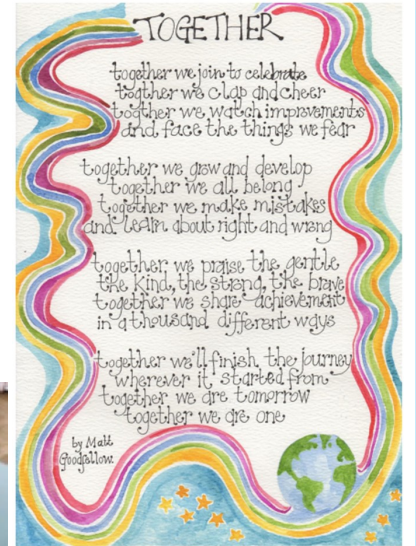 TOGETHER
together we join to celebrate
together we clap and cheer
together we watch improvements
and, face the things we fear
together we grow and develop
together we all belong
together we make mistakes
and learn about right and wrong
together we praise the gentle
the kind, the strong, the brave
together we share achievement
in a thousand different ways
together we'll finish the journey
wherever it started from
together we are tomorrow
together we are one
by Matt
Goodfellow.